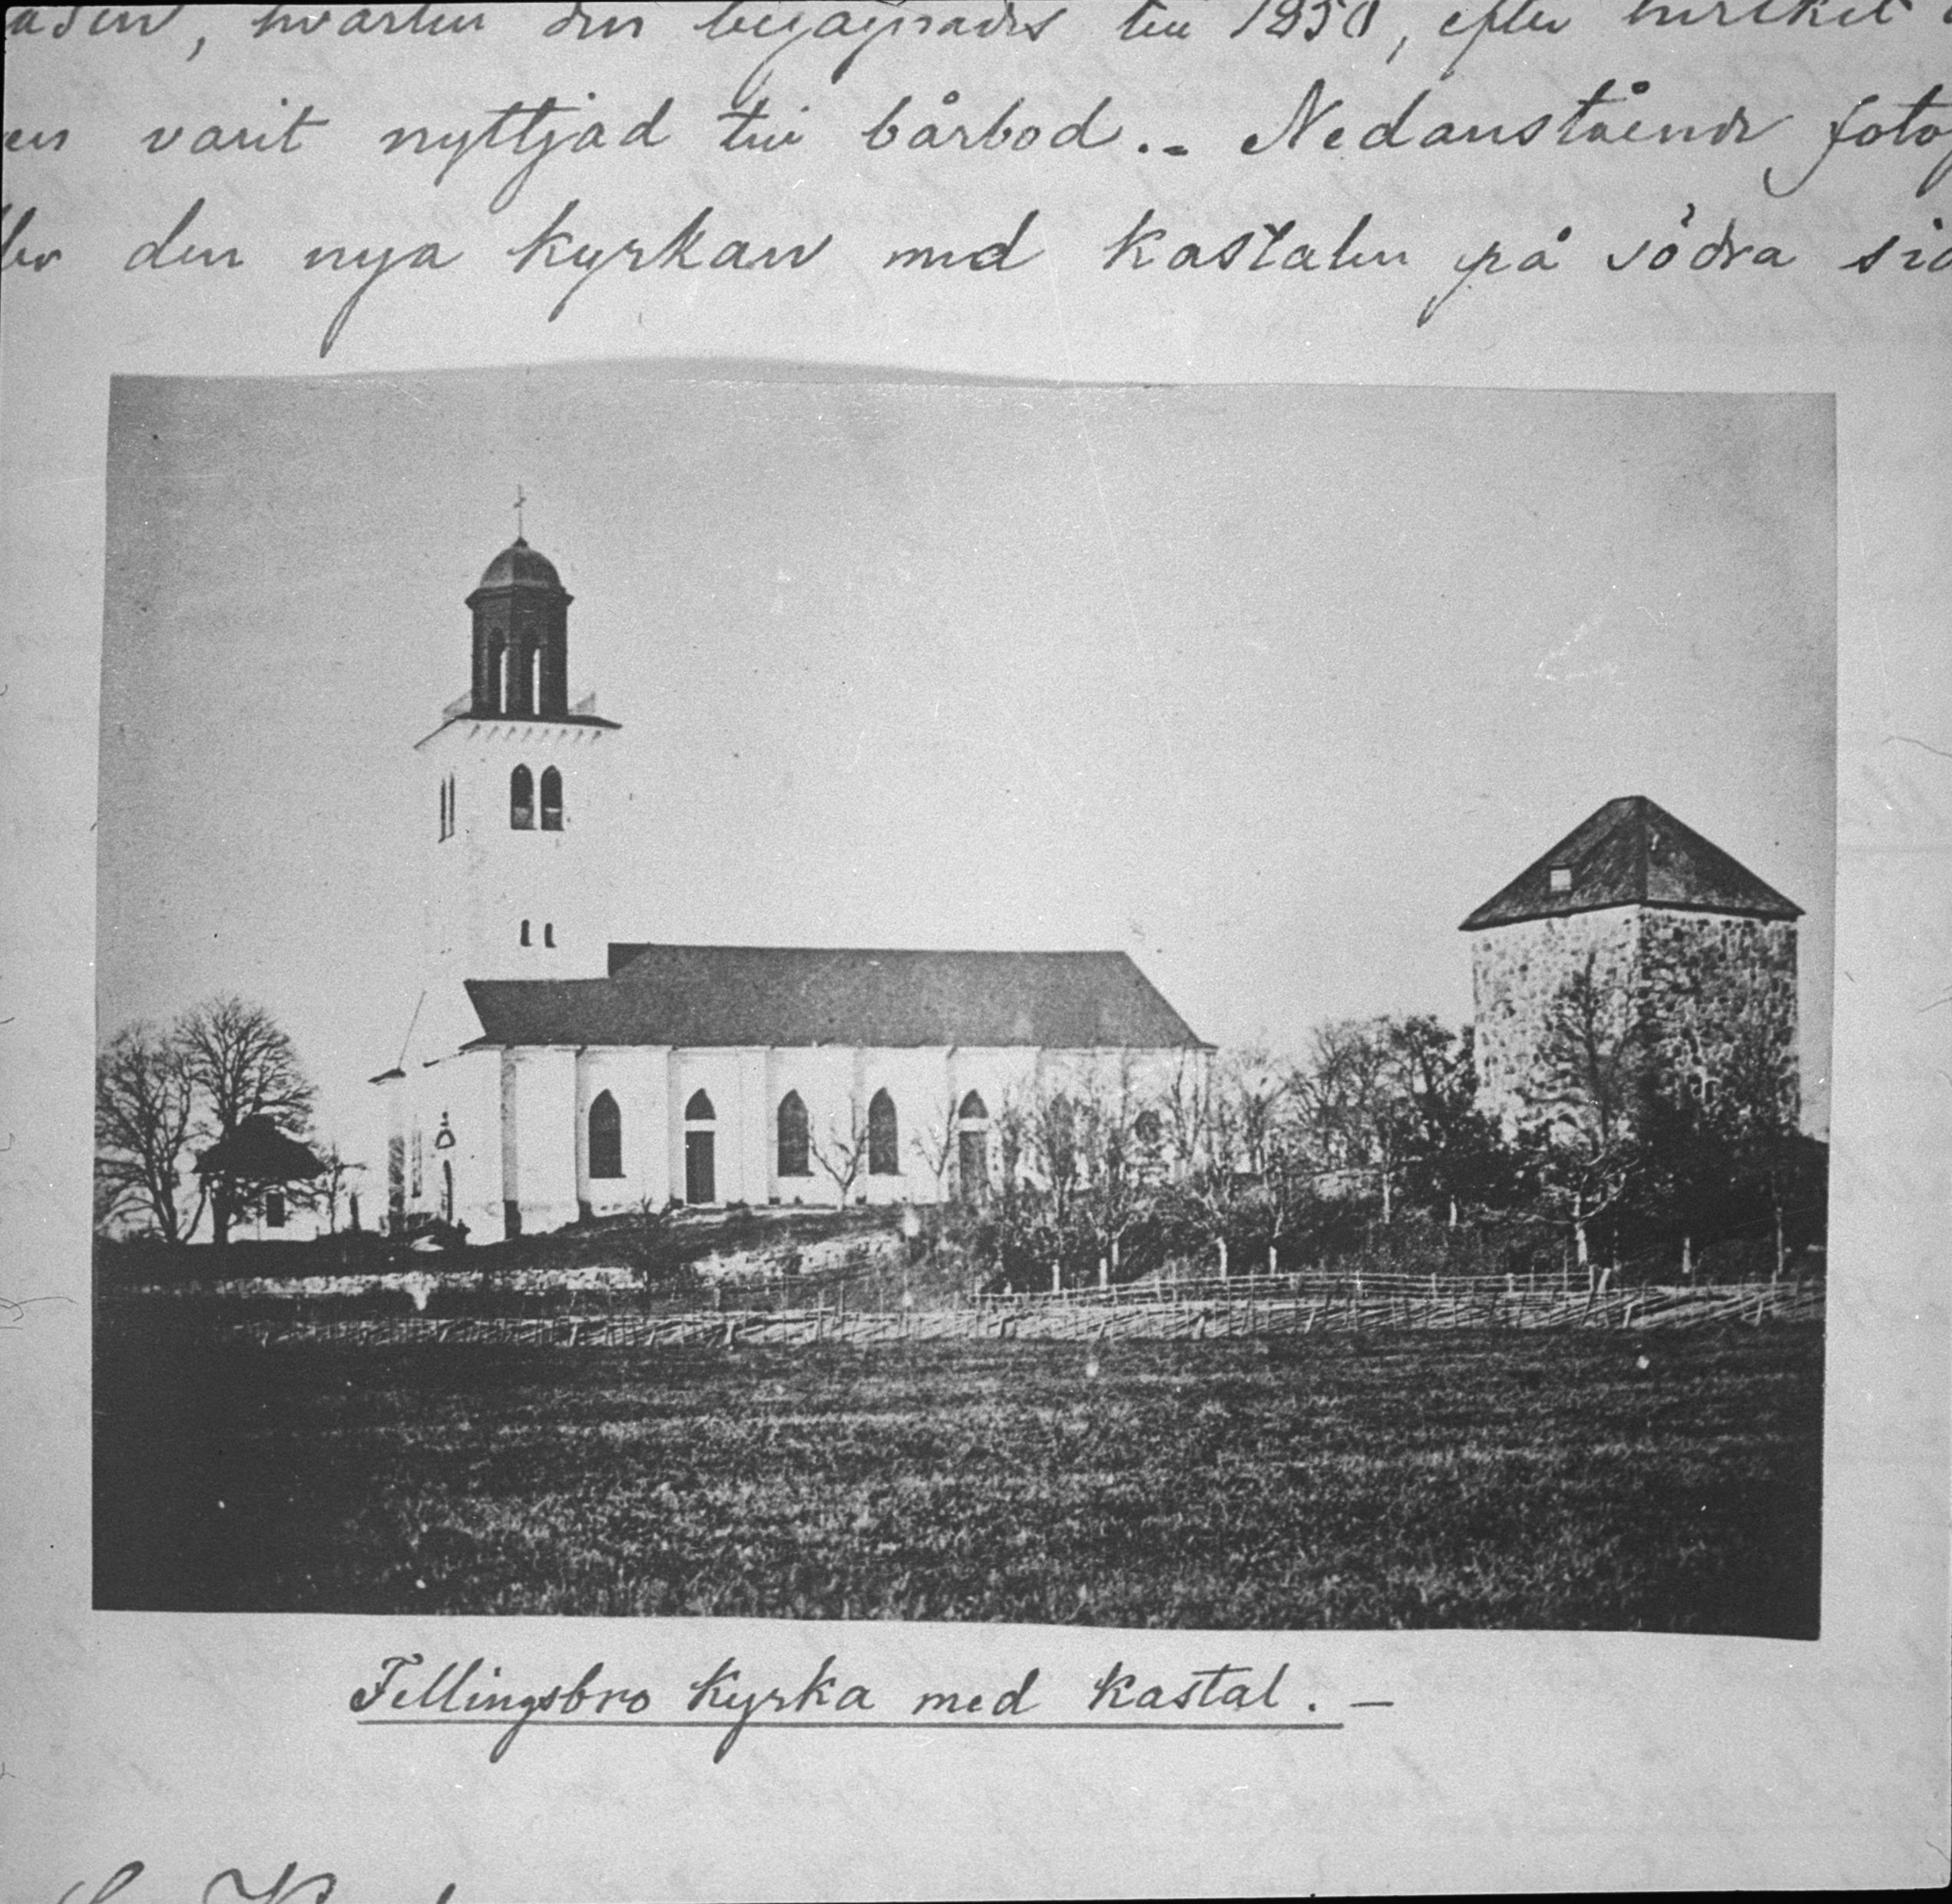 , hvartill den begagnades till 1850, efter hvilket
varit nyttjad till bårbod.- Nedanstående fotog
den nya kyrkan med kastalen på södra sid
Fellingsbro Kyrka med kastal. -